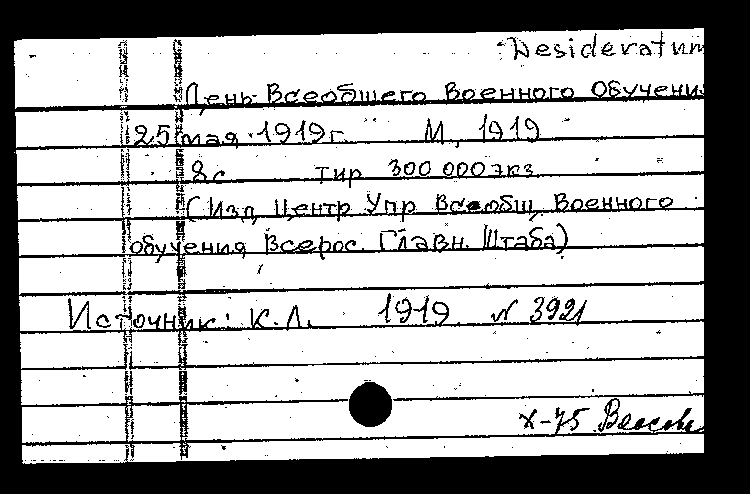 Desideratum
День Всеобщего Военного Обучения
25 мая 1919 г. М., 1919
8 с тир 300 000 экз
(Изд. Центр Упр Всеобщ. Военного
обучения Всерос. Главн. Штаба)
Источник: К.Л. 1919 № 3921
X-75